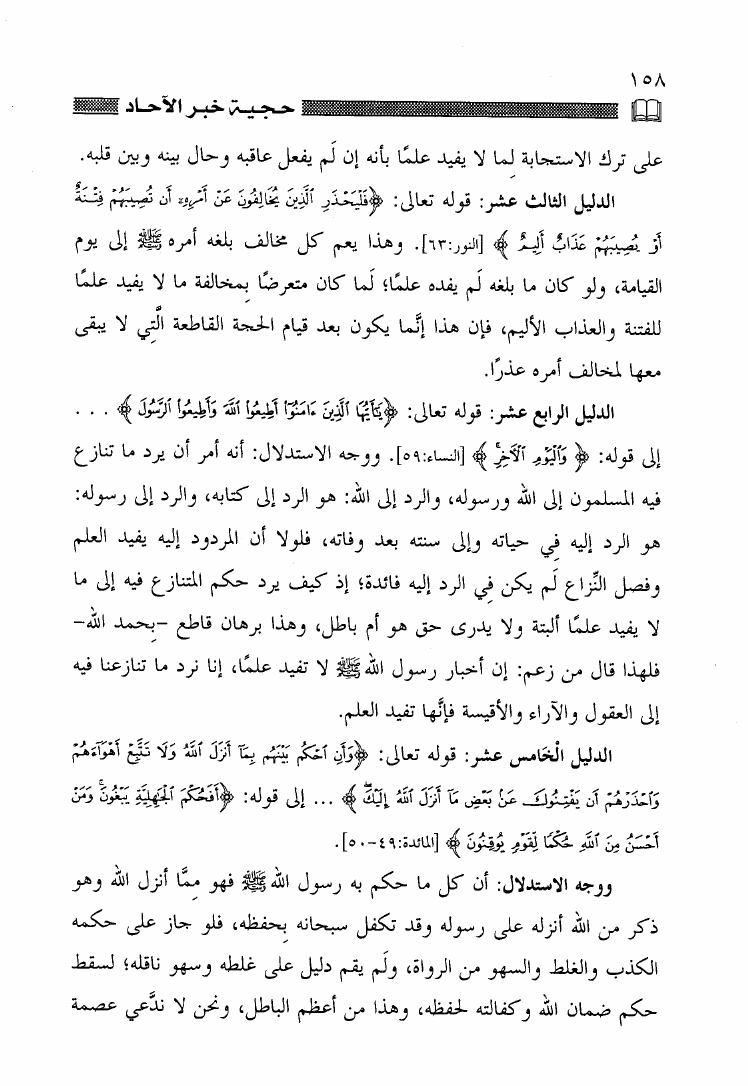 ١٥٨
حجية خبر الآحاد
على ترك الاستجابة لِما لا يفيد علمًا بأنه إن لَم يفعل عاقبه وحال بينه وبين قلبه.
الدليل الثالث عشر: قوله تعالى: ﴿فَلْيَحْذَرِ ٱلَّذِينَ يُخَالِفُونَ عَنْ أَمْرِهِۦٓ أَن تُصِيبَهُمْ فِتْنَةٌ
أَوْ يُصِيبَهُمْ عَذَابٌ أَلِيمٌ﴾ [النور:٦٣]. وهذا يعم كل مخالف بلغه أمره ﷺ إلى يوم
القيامة، ولو كان ما بلغه لَم يفده علمًا؛ لَما كان متعرضًا بِمخالفة ما لا يفيد علمًا
للفتنة والعذاب الأليم، فإن هذا إنَّما يكون بعد قيام الحجة القاطعة الَّتِي لا يبقى
معها لمخالف أمره عذرًا.
الدليل الرابع عشر: قوله تعالى: ﴿يَٰٓأَيُّهَا ٱلَّذِينَ ءَامَنُوٓا۟ أَطِيعُوا۟ ٱللَّهَ وَأَطِيعُوا۟ ٱلرَّسُولَ﴾ ...
إلى قوله: ﴿وَٱلْيَوْمِ ٱلْأَخِرِ﴾ [النساء:٥٩]. ووجه الاستدلال: أنه أمر أن يرد ما تنازع
فيه المسلمون إلى الله ورسوله، والرد إلى الله: هو الرد إلى كتابه، والرد إلى رسوله:
هو الرد إليه فِي حياته وإلى سنته بعد وفاته، فلولا أن المردود إليه يفيد العلم
وفصل النِّزاع لَم يكن فِي الرد إليه فائدة؛ إذ كيف يرد حكم المتنازع فيه إلى ما
لا يفيد علمًا ألبتة ولا يدرى حق هو أم باطل، وهذا برهان قاطع -بحمد الله-
فلهذا قال من زعم: إن أخبار رسول الله ﷺ لا تفيد علمًا، إنا نرد ما تنازعنا فيه
إلى العقول والآراء والأقيسة فإنَّها تفيد العلم.
الدليل الْخامس عشر: قوله تعالى: ﴿وَأَنِ ٱحْكُم بَيْنَهُم بِمَآ أَنزَلَ ٱللَّهُ وَلَا تَتَّبِعْ أَهْوَآءَهُمْ
وَٱحْذَرْهُمْ أَن يَفْتِنُوكَ عَنۢ بَعْضِ مَآ أَنزَلَ ٱللَّهُ إِلَيْكَ﴾ ... إلى قوله: ﴿أَفَحُكْمَ ٱلْجَٰهِلِيَّةِ يَبْغُونَ وَمَنْ
أَحْسَنُ مِنَ ٱللَّهِ حُكْمًا لِّقَوْمٍ يُوقِنُونَ﴾ [المائدة:٤٩-٥٠].
ووجه الاستدلال: أن كل ما حكم به رسول الله ﷺ فهو مِمَّا أنزل الله وهو
ذكر من الله أنزله على رسوله وقد تكفل سبحانه بِحفظه، فلو جاز على حكمه
الكذب والغلط والسهو من الرواة، ولَم يقم دليل على غلطه وسهو ناقله؛ لسقط
حكم ضمان الله وكفالته لحفظه، وهذا من أعظم الباطل، ونحن لا ندَّعي عصمة